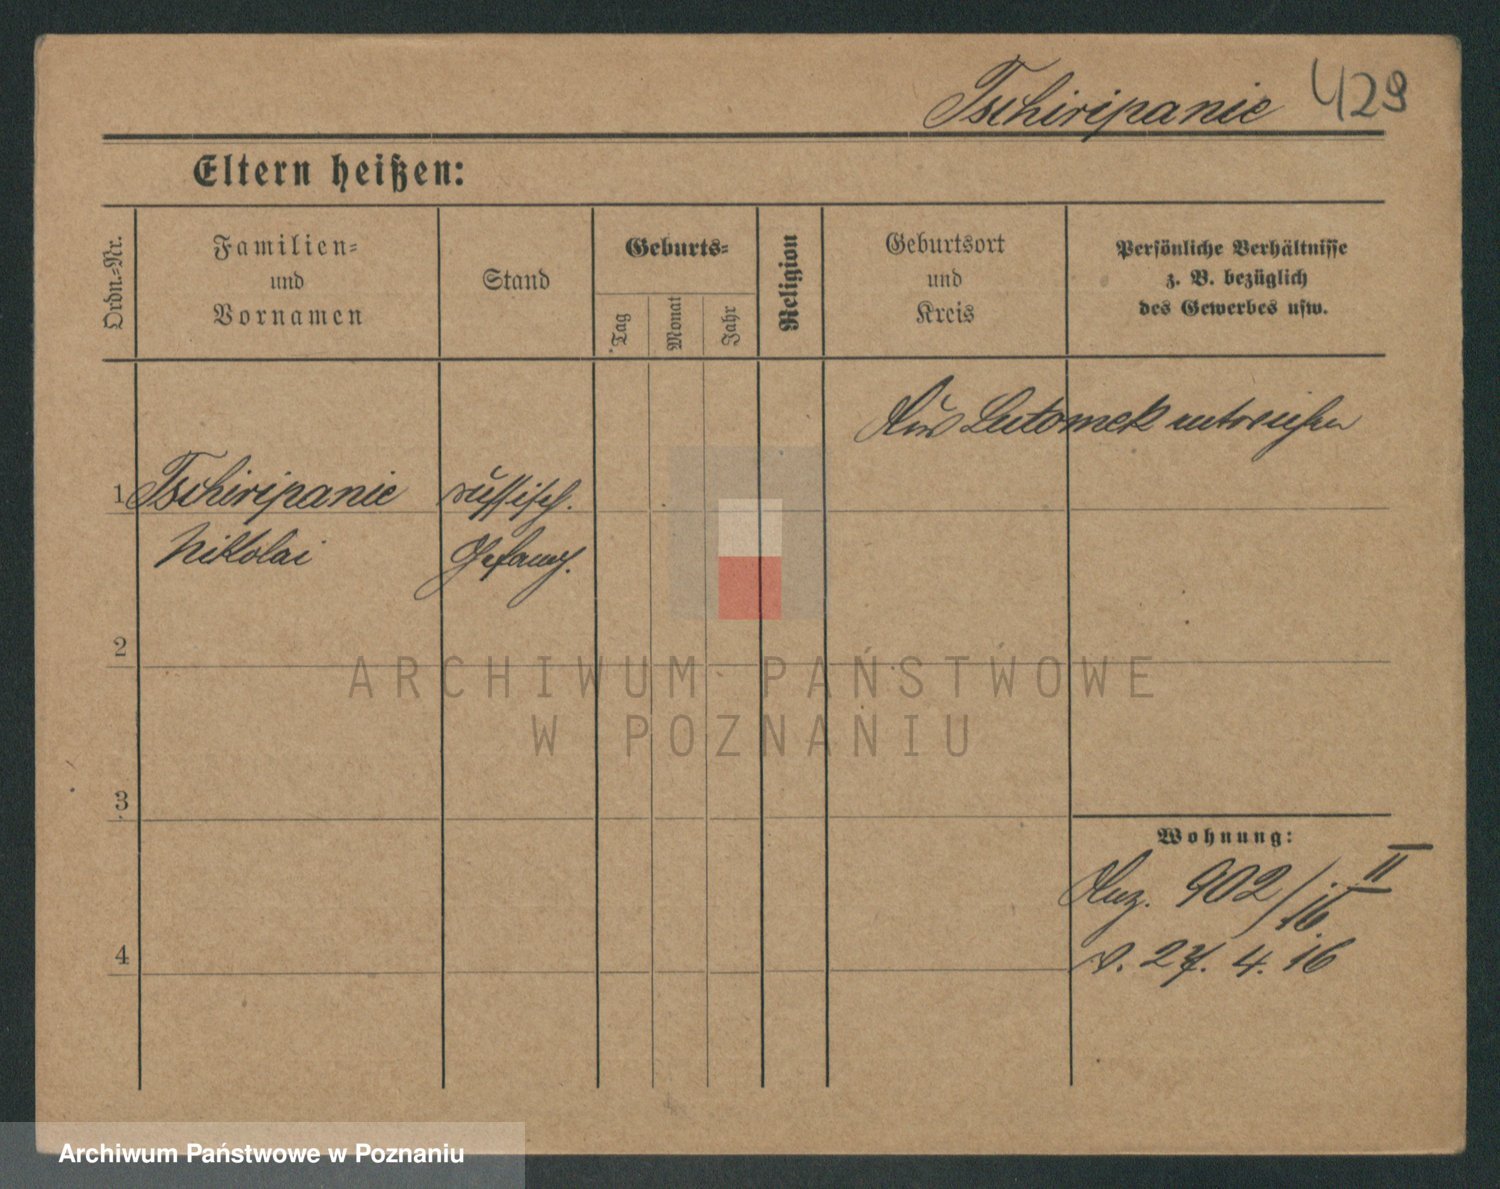 Tschiripanie 429
Eltern heißen:
Ordn.-Nr.
Familien-
und
Vornamen
Stand
Geburts-
Tag
Monat
Jahr
Religion
Geburtsort
und
Kreis
Persönliche Verhältnisse
z. B. bezüglich
des Gewerbes usw.
Aus Lutomek entwichen
1 Tschiripanie russisch.
Nikolai Gefang.
2
3
4
Wohnung:
Anz. 902/16 II
v. 27. 4. 16
ARCHIWUM PAŃSTWOWE
W POZNANIU
Archiwum Państwowe w Poznaniu